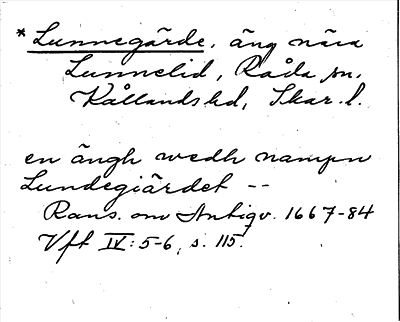 * Lunnegärde, äng nära
Lunnelid, Råda sn.
Kållands hd, Skar. l.
en ängh wedh nampn
Lundegiärdet --
Rans. om Antiqv. 1667-84
Vft IV: 5-6, s. 115.